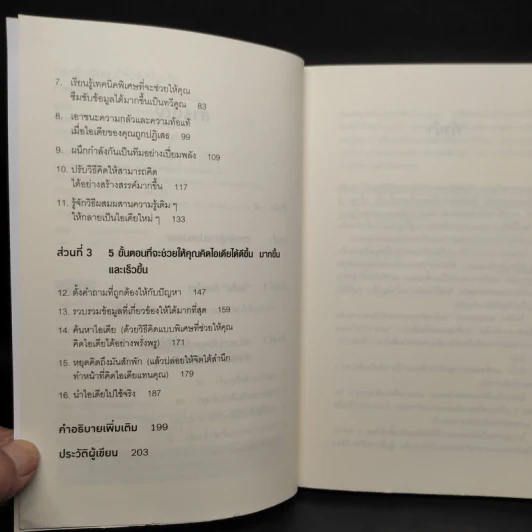 7. เรียนรู้เทคนิคพิเศษที่จะช่วยให้คุณ
ซึมซับข้อมูลได้มากขึ้นเป็นทวีคูณ 83
8. เอาชนะความกลัวและความท้อแท้
เมื่อไอเดียของคุณถูกปฏิเสธ 99
9. ผนึกกำลังกันเป็นทีมอย่างเปี่ยมพลัง 109
10. ปรับวิธีคิดให้สามารถคิด
ได้อย่างสร้างสรรค์มากขึ้น 117
11. รู้จักวิธีผสมผสานความรู้เดิม ๆ
ให้กลายเป็นไอเดียใหม่ ๆ 133
ส่วนที่ 3 5 ขั้นตอนที่จะช่วยให้คุณคิดไอเดียได้ดีขึ้น มากขึ้น
และเร็วขึ้น
12. ตั้งคำถามที่ถูกต้องให้กับปัญหา 147
13. รวบรวมข้อมูลที่เกี่ยวข้องให้ได้มากที่สุด 159
14. ค้นหาไอเดีย (ด้วยวิธีคิดแบบพิเศษที่ช่วยให้คุณ
คิดไอเดียได้อย่างพรั่งพรู) 171
15. หยุดคิดถึงมันสักพัก (แล้วปล่อยให้จิตใต้สำนึก
ทำหน้าที่คิดไอเดียแทนคุณ) 179
16. นำไอเดียไปใช้จริง 187
คำอธิบายเพิ่มเติม 199
ประวัติผู้เขียน 203